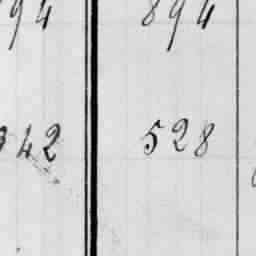 94 894
42 528